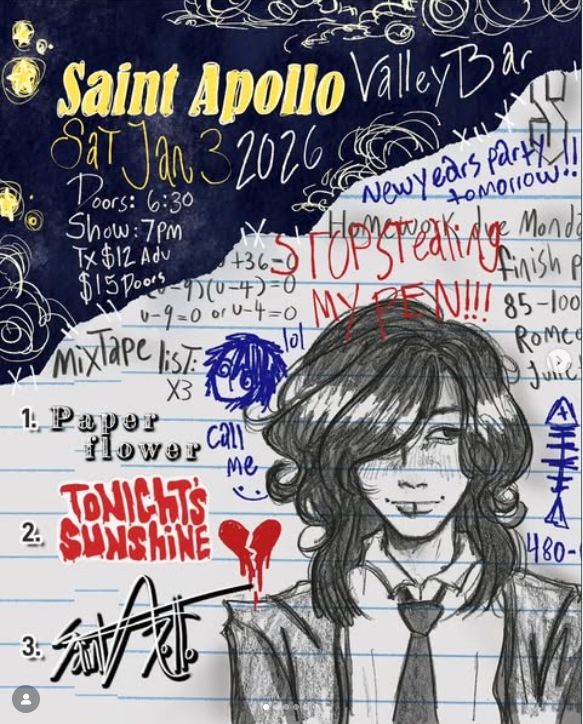 Saint Apollo Valley Bar
Sat Jan 3 2026
Doors: 6:30
Show: 7pm
Tx $12 Adv
$15 Doors
XII XV
IX
XI
New years party
tomorrow!!
Homework due Monda
finish p
85-100
Romeo
Julie
STOP Stealing
MY PEN!!!
+36=0
u-9)(u-4)=0
u-9=0 or u-4=0
mixTape list:
X3
lol
call
me
1. Paper
flower
2. TONIGHT'S
SUNSHINE
3. Saint Apollo
480-